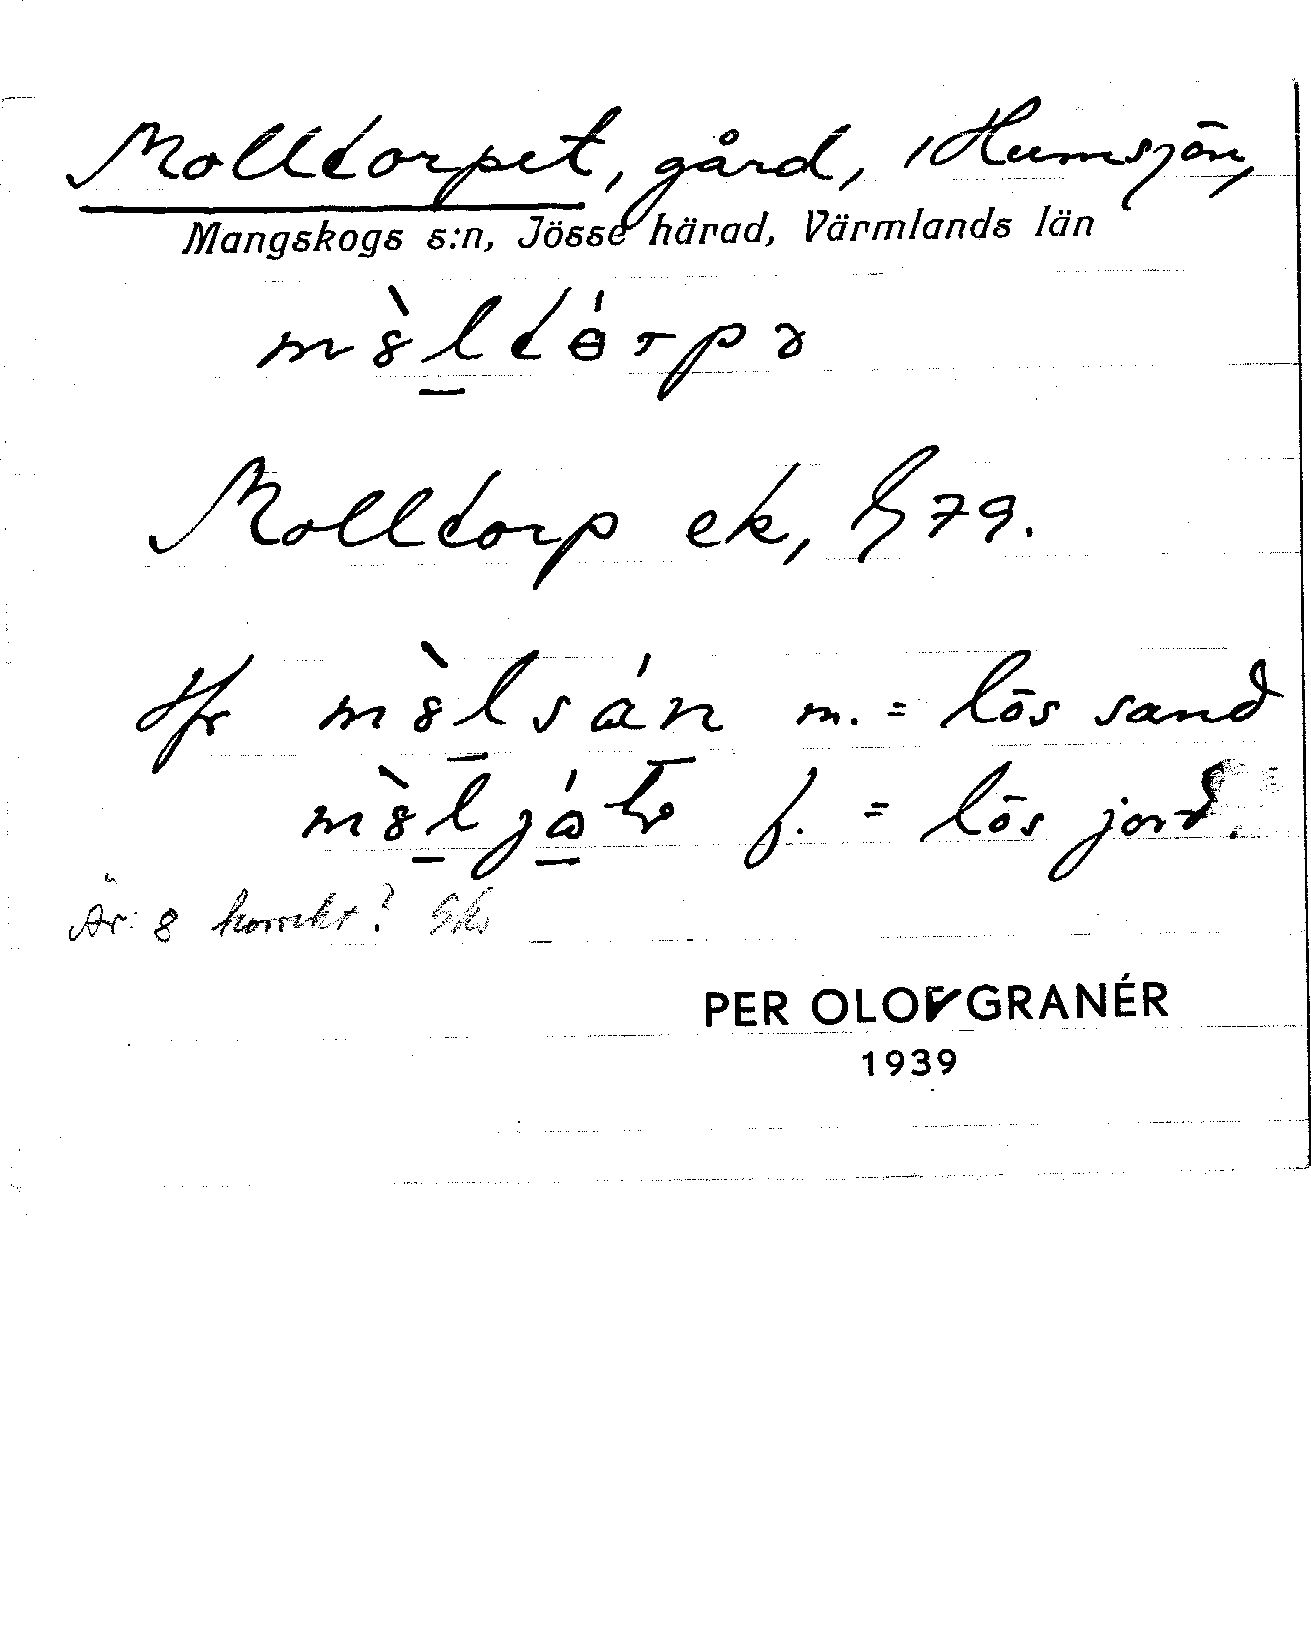 Molltorpet, gård, Humsjön,
Mangskogs s:n, Jösse härad, Värmlands län
m8̀ltɵ́rpə
Molltorp ek, G 79.
Jfr m8̀lsán m. = lös sand
m8̀ljó f. = lös jord.
Är 8 korrekt?
PER OLOF GRANÉR
1939